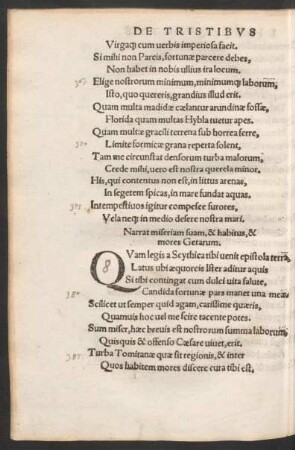 DE TRISTIBVS
Virgaq; cum uerbis imperiosa facit.
Si mihi non Pareis, fortunæ parcere debes,
Non habet in nobis ullius ira locum.
365 Elige nostrorum minimum, minimumq; laborum,
Isto, quo quereris, grandius illud erit.
Quam multa madidæ cælantur arundine fossæ,
Florida quam multas Hybla tuetur apes.
Quam multæ gracili terrena sub horrea ferre,
Limite formicæ grana reperta solent,
Tam me circunstat densorum turba malorum,
Crede mihi, uero est nostra querela minor.
His, qui contentus non est, in littus arenas,
In segetem spicas, in mare fundat aquas.
375 Intempestiuos igitur compesce furores,
Vela neq; in medio desere nostra mari.
Narrat miseriam suam, & habitus, &
mores Getarum.
8
QVam legis a Scythica tibi uenit epistola terra,
Latus ubi æquoreis Ister aditur aquis
Si tibi contingat cum dulci uita salute,
380 Candida fortunæ pars manet una meæ
Scilicet ut semper quid agam, carissime quæris,
Quamuis hoc uel me scire tacente potes.
Sum miser, hæc breuis est nostrorum summa laborum,
Quisquis & offenso Cæsare uiuet, erit.
385 Turba Tomitanæ quæ sit regionis, & inter
Quos habitem mores discere cura tibi est.